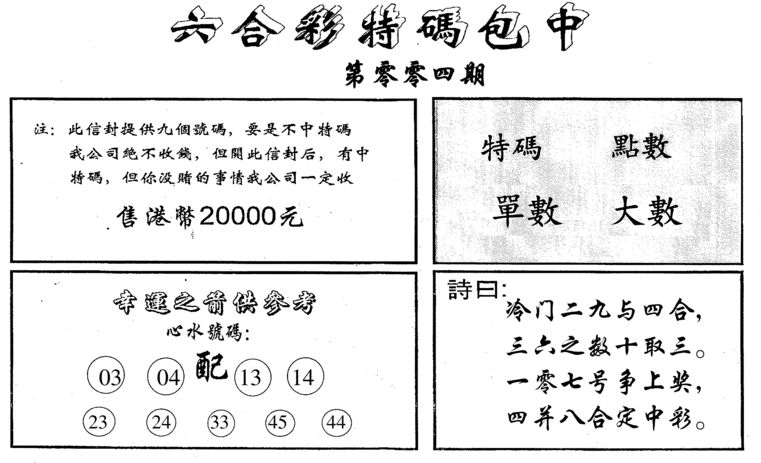 六合彩特碼包中
第零零四期
注：此信封提供九個號碼，要是不中特碼
我公司絕不收錢，但開此信封后，有中
特碼，但你没賭的事情我公司一定收
售港幣20000元
特碼 點數
單數 大數
幸運之箭供參考
心水號碼：
03 04 配 13 14
23 24 33 45 44
詩曰：
冷门二九与四合，
三六之数十取三。
一零七号争上奖，
四并八合定中彩。